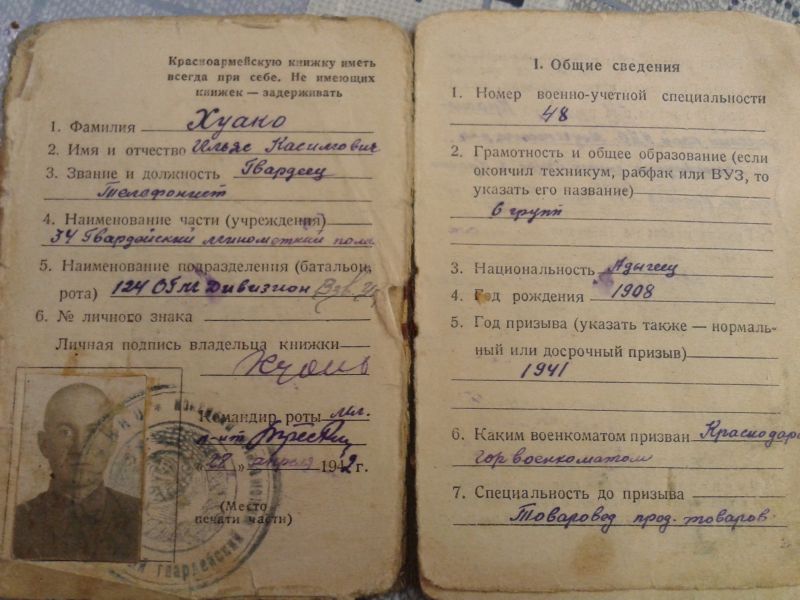 Красноармейскую книжку иметь
всегда при себе. Не имеющих
книжек — задерживать
1. Фамилия Хуако
2. Имя и отчество Ильяс Касимович
3. Звание и должность Гвардеец
Телефонист
4. Наименование части (учреждения)
34 Гвардейский минометный полк
5. Наименование подразделения (батальон,
рота) 124 Дивизион
6. № личного знака
Личная подпись владельца книжки
Командир роты мл.
л-нт
"28" апреля 1942 г.
(Место
печати части)
I. Общие сведения
1. Номер военно-учетной специальности
48
2. Грамотность и общее образование (если
окончил техникум, рабфак или ВУЗ, то
указать его название)
6 групп
3. Национальность Адыгеец
4. Год рождения 1908
5. Год призыва (указать также — нормаль-
ный или досрочный призыв)
1941
6. Каким военкоматом призван Краснодарс
горвоенкоматом
7. Специальность до призыва
Товаровед прод. товаров